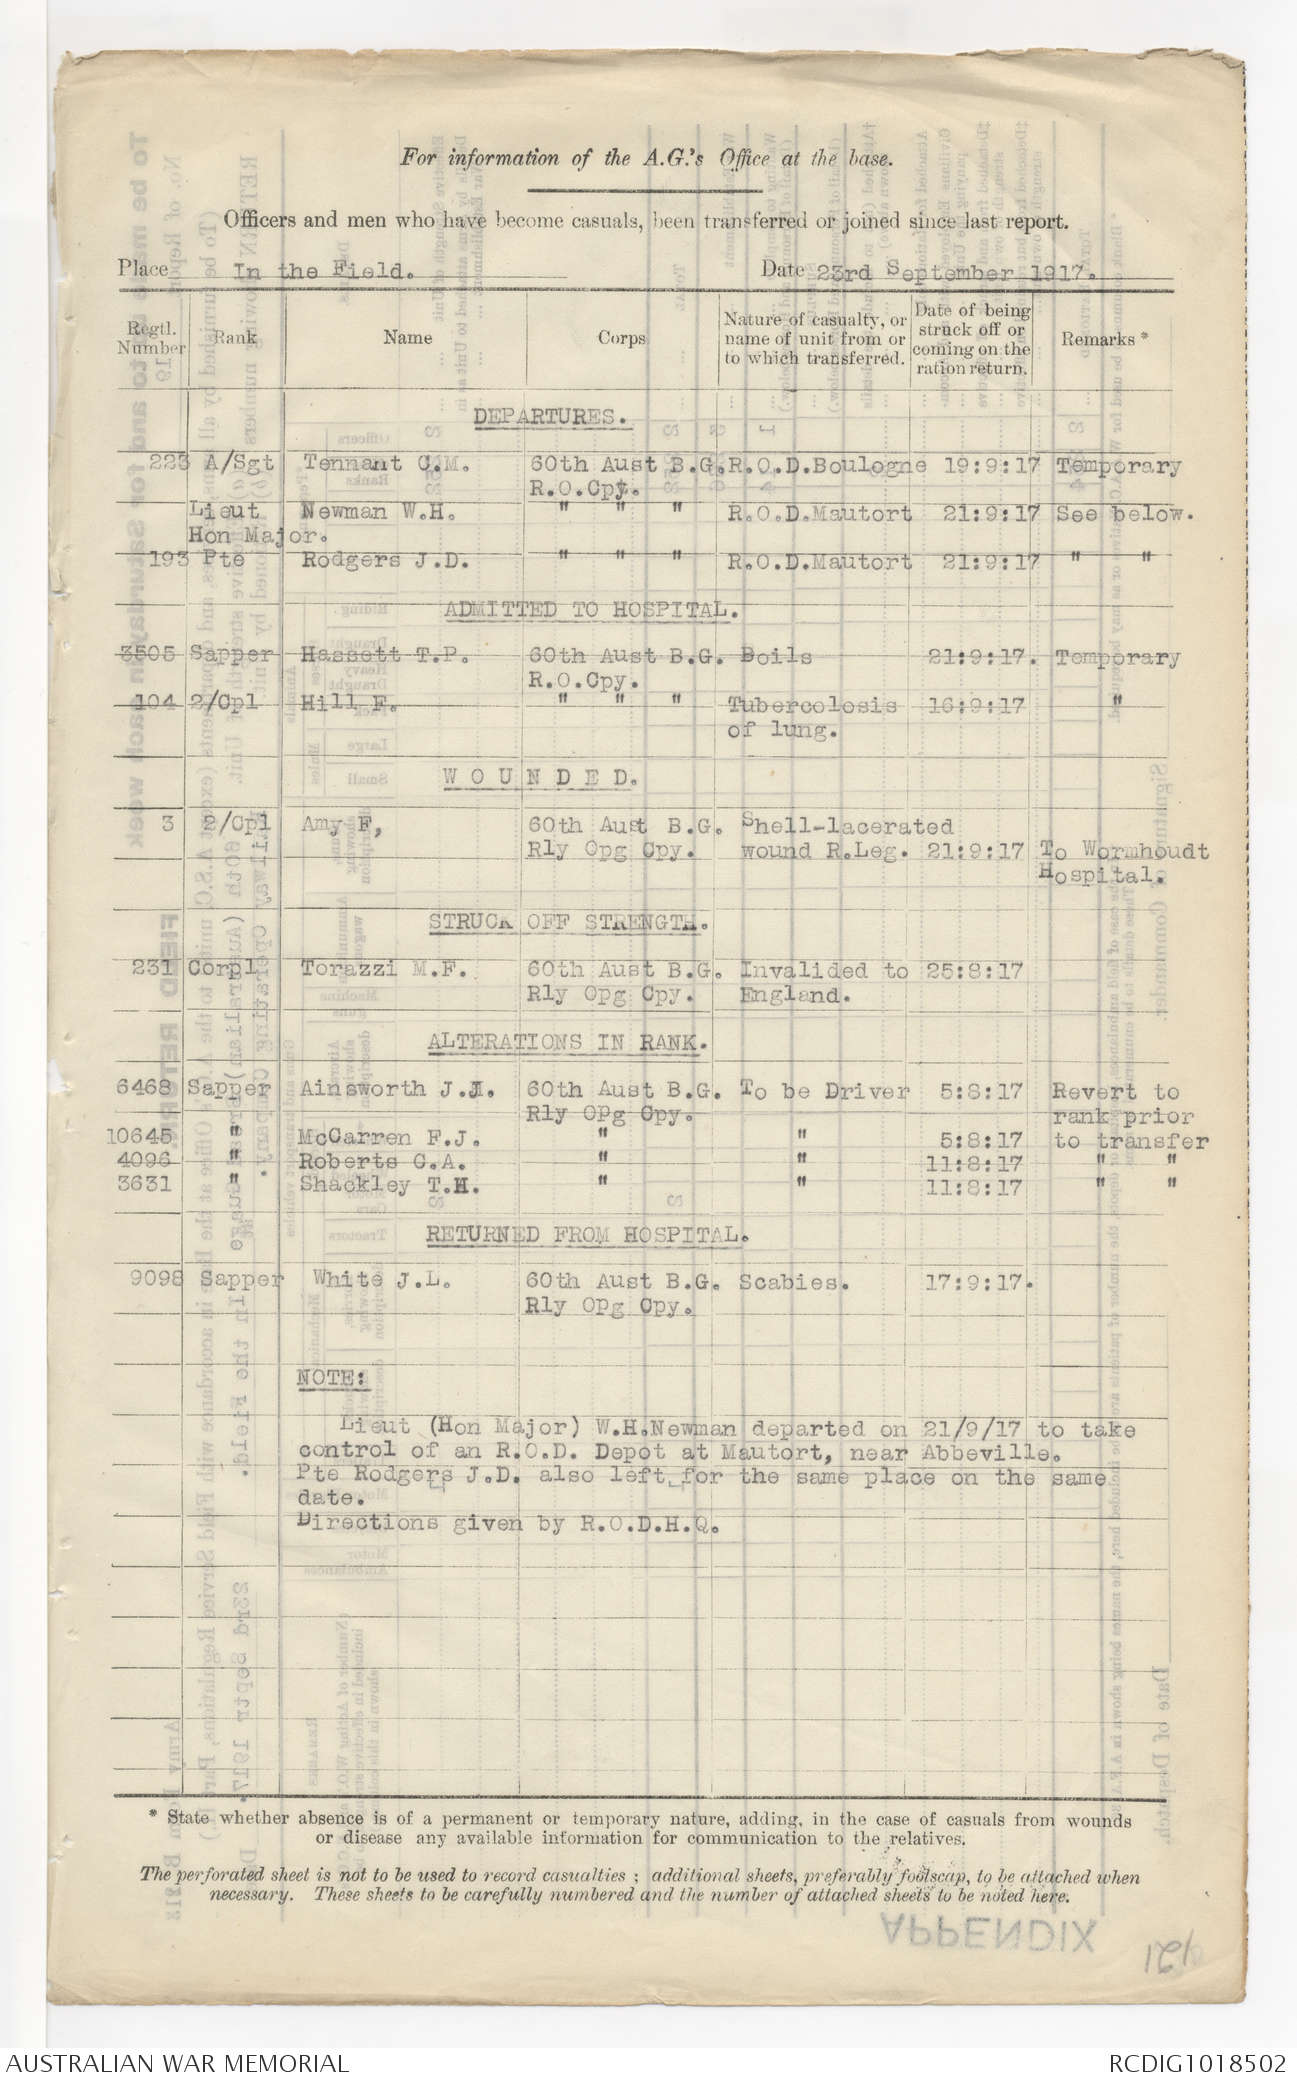 For information of the A.G.'s Office at the base.
Officers and men who have become casuals, been transferred or joined since last report.
Place In the Field. Date 23rd September 1917.
Regtl. Number Rank Name Corps Nature of casualty, or name of unit from or to which transferred. Date of being struck off or coming on the ration return. Remarks *
DEPARTURES.
223 A/Sgt Tennant C.M. 60th Aust B.G. R.O.D.Boulogne 19:9:17 Temporary
R.O.Cpy.
Lieut Newman W.H. " " " R.O.D.Mautort 21:9:17 See below.
Hon Major.
193 Pte Rodgers J.D. " " " R.O.D.Mautort 21:9:17 " "
ADMITTED TO HOSPITAL.
3505 Sapper Hassett T.P. 60th Aust B.G. Boils 21:9:17. Temporary
R.O.Cpy.
104 2/Cpl Hill F. " " " Tubercolosis 16:9:17 "
of lung.
WOUNDED.
3 2/Cpl Amy F, 60th Aust B.G. Shell-lacerated
Rly Opg Cpy. wound R.Leg. 21:9:17 To Wormhoudt
Hospital.
STRUCK OFF STRENGTH.
231 Corpl Torazzi M.F. 60th Aust B.G. Invalided to 25:8:17
Rly Opg Cpy. England.
ALTERATIONS IN RANK.
6468 Sapper Ainsworth J.J. 60th Aust B.G. To be Driver 5:8:17 Revert to
Rly OPg Cpy. rank prior
10645 " McCarren F.J. " " 5:8:17 to transfer
4096 " Roberts C.A. " " 11:8:17 " "
3631 " Shackley T.H. " " 11:8:17 " "
RETURNED FROM HOSPITAL.
9098 Sapper White J.L. 60th Aust B.G. Scabies. 17:9:17.
Rly OPg Cpy.
NOTE:
Lieut (Hon Major) W.H.Newman departed on 21/9/17 to take
control of an R.O.D. Depot at Mautort, near Abbeville.
Pte Rodgers J.D. also left for the same place on the same
date.
Directions given by R.O.D.H.Q.
* State whether absence is of a permanent or temporary nature, adding, in the case of casuals from wounds
or disease any available information for communication to the relatives.
The perforated sheet is not to be used to record casualties ; additional sheets, preferably foolscap, to be attached when
necessary. These sheets to be carefully numbered and the number of attached sheets to be noted here.
APPENDIX
421
AUSTRALIAN WAR MEMORIAL RCDIG1018502